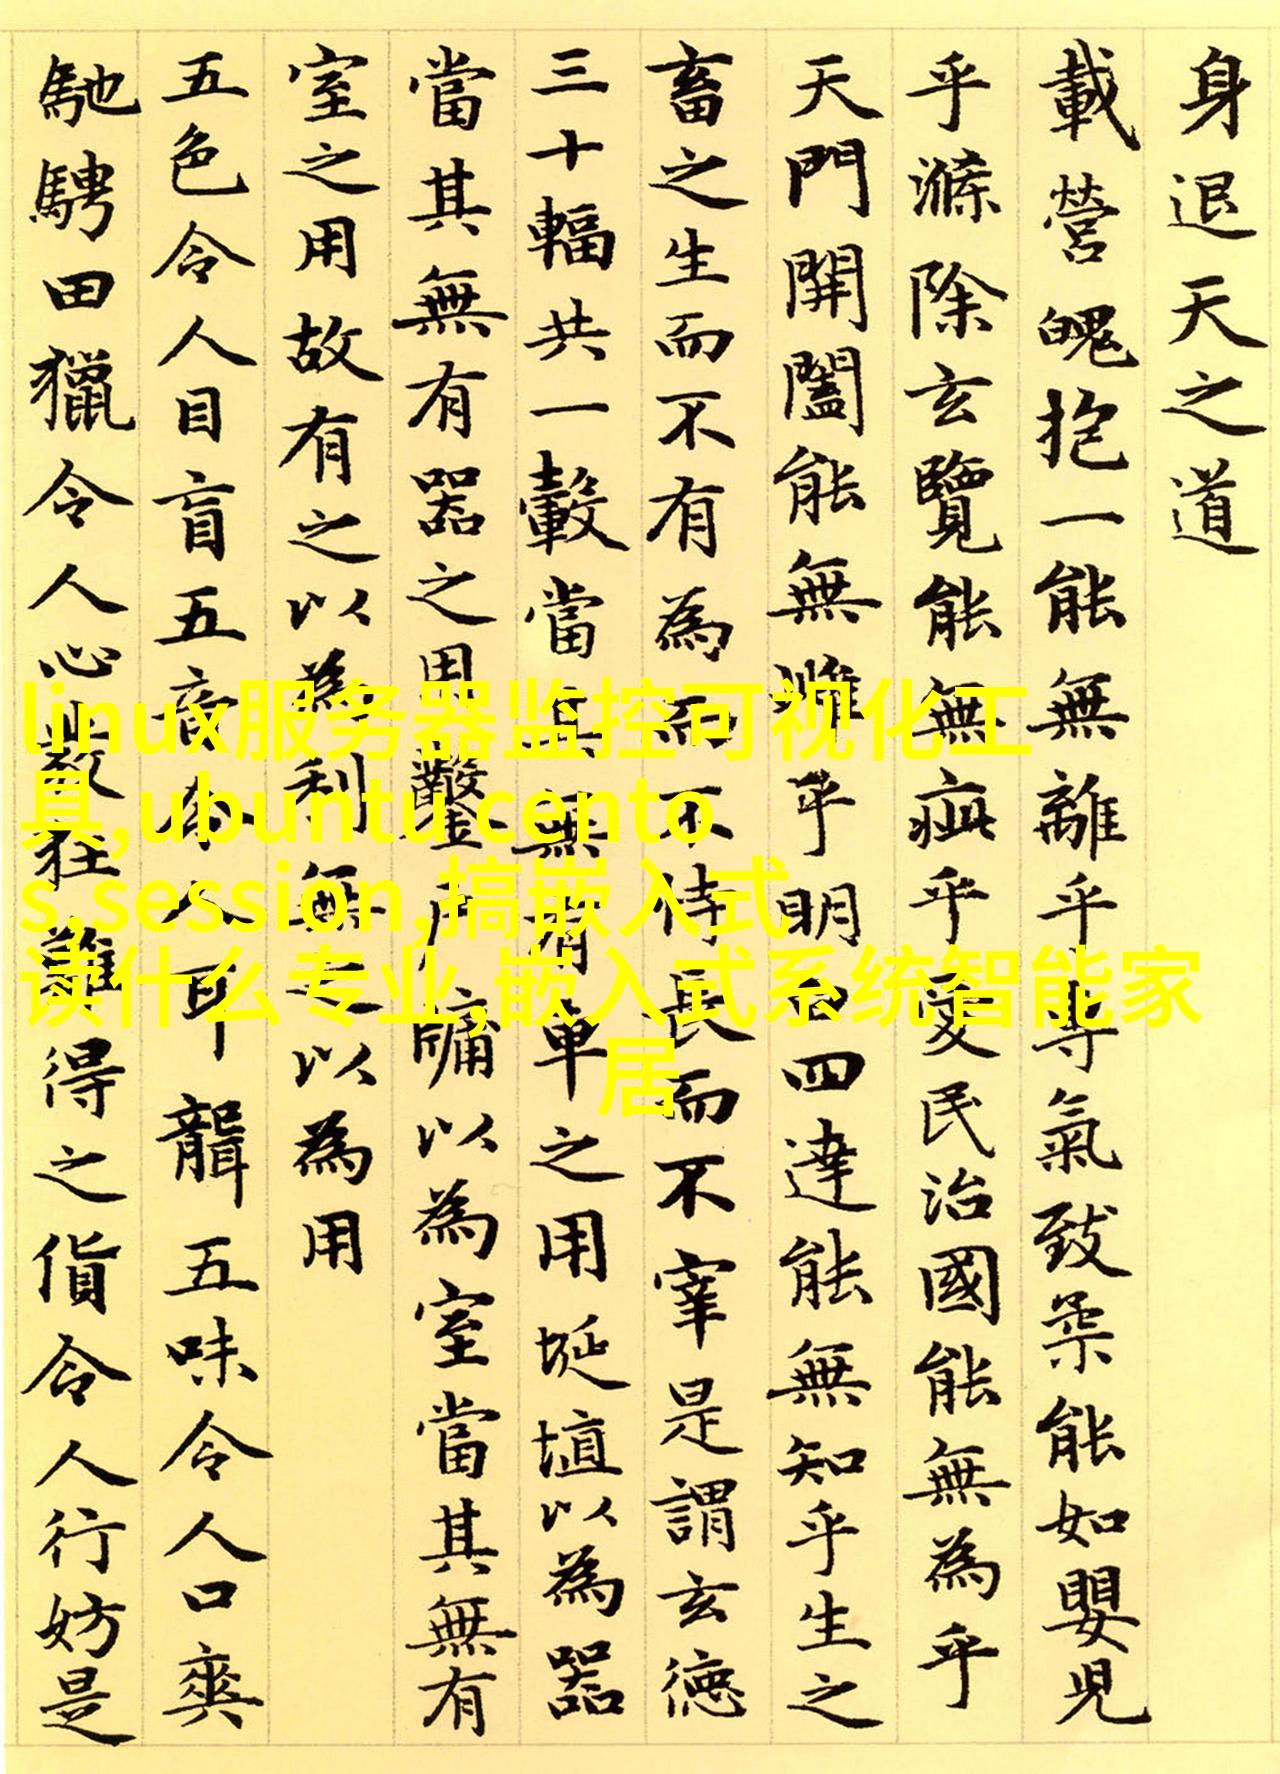 身退天之道
載營魄抱一能無離乎專氣致柔能如嬰児
乎滌除玄覽能無疵乎愛民治國能無為乎
天門開闔能無雌乎明白四達能無知乎生之
畜之生而不有為而不恃長而不宰是謂玄德
三十輻共一轂當其無有車之用埏埴以為器
當其無有器之用鑿戶牖以為室當其無有
室之用故有之以為利無之以為用
五色令人目盲五音令人耳聾五味令人口爽
馳騁田獵令人心發狂難得之貨令人行妨是
linux服务器监控可视化工
具,ubuntu cento
s,session,搞嵌入式
读什么专业,嵌入式系统智能家
居